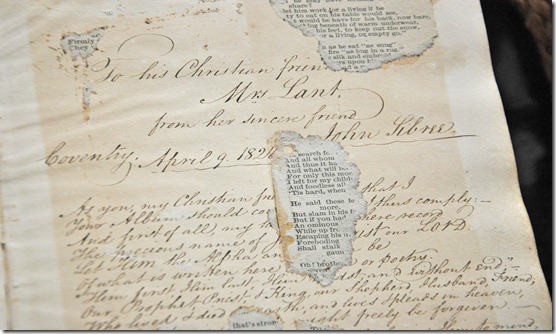 share!
let him work for a living if he
ty to eat on his table would see,
would be have for his back, now bare,
ng beneath of warm underwear,
his feet, to keep out the snow,
or a living, or empty go."
as he eat "as snug"
fire "as bug in a rug,
silk and
upon his
Firmly
They
To his Christian friend
Mrs Lant.
from her sincere friend
John Sibree
Coventry. April 9. 182
search fo
And all whom
And thus it ha
And what will be
For only this mo
I left for my child
And foodless all
'Tis hard, when
He said these lo
more,
But slam in his f
But if you ha
An ominous
While up fr
Escaping his
Foreboding
Shall stalk
gaun
Oh! brothe
As you, my Christian fr that I
your Album should co thus comply:
And first of all, my h here record
The precious name of Jesus our LORD
Let Him the Alpha an be
Of what is written here or poetry.
Him first Him last Him st, and without end;
Our Prophet, Priest, & King, our Shepherd, Husband, Friend;
Who lived & died worth, and lives & pleads in heaven,
might freely be forgiven
that's stron